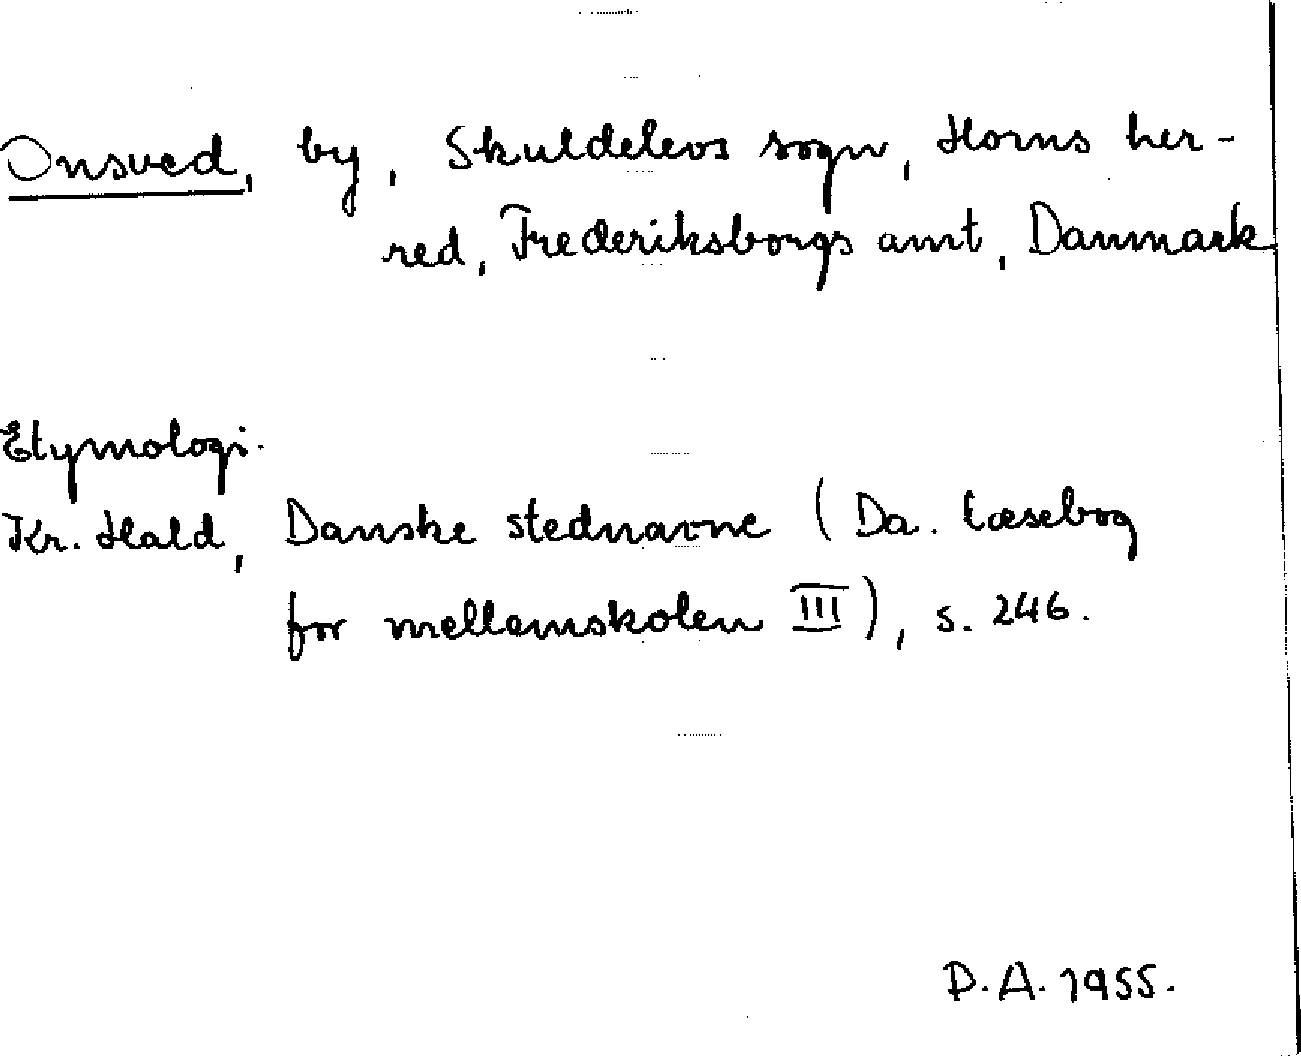 Onsved, by, Skuldelevs sogn, Horns her-
red, Frederiksborgs amt, Danmark
Etymologi.
Kr. Hald, Danske stednavne (Da. læsebog
for mellemskolen III), s. 246.
D.A. 1955.